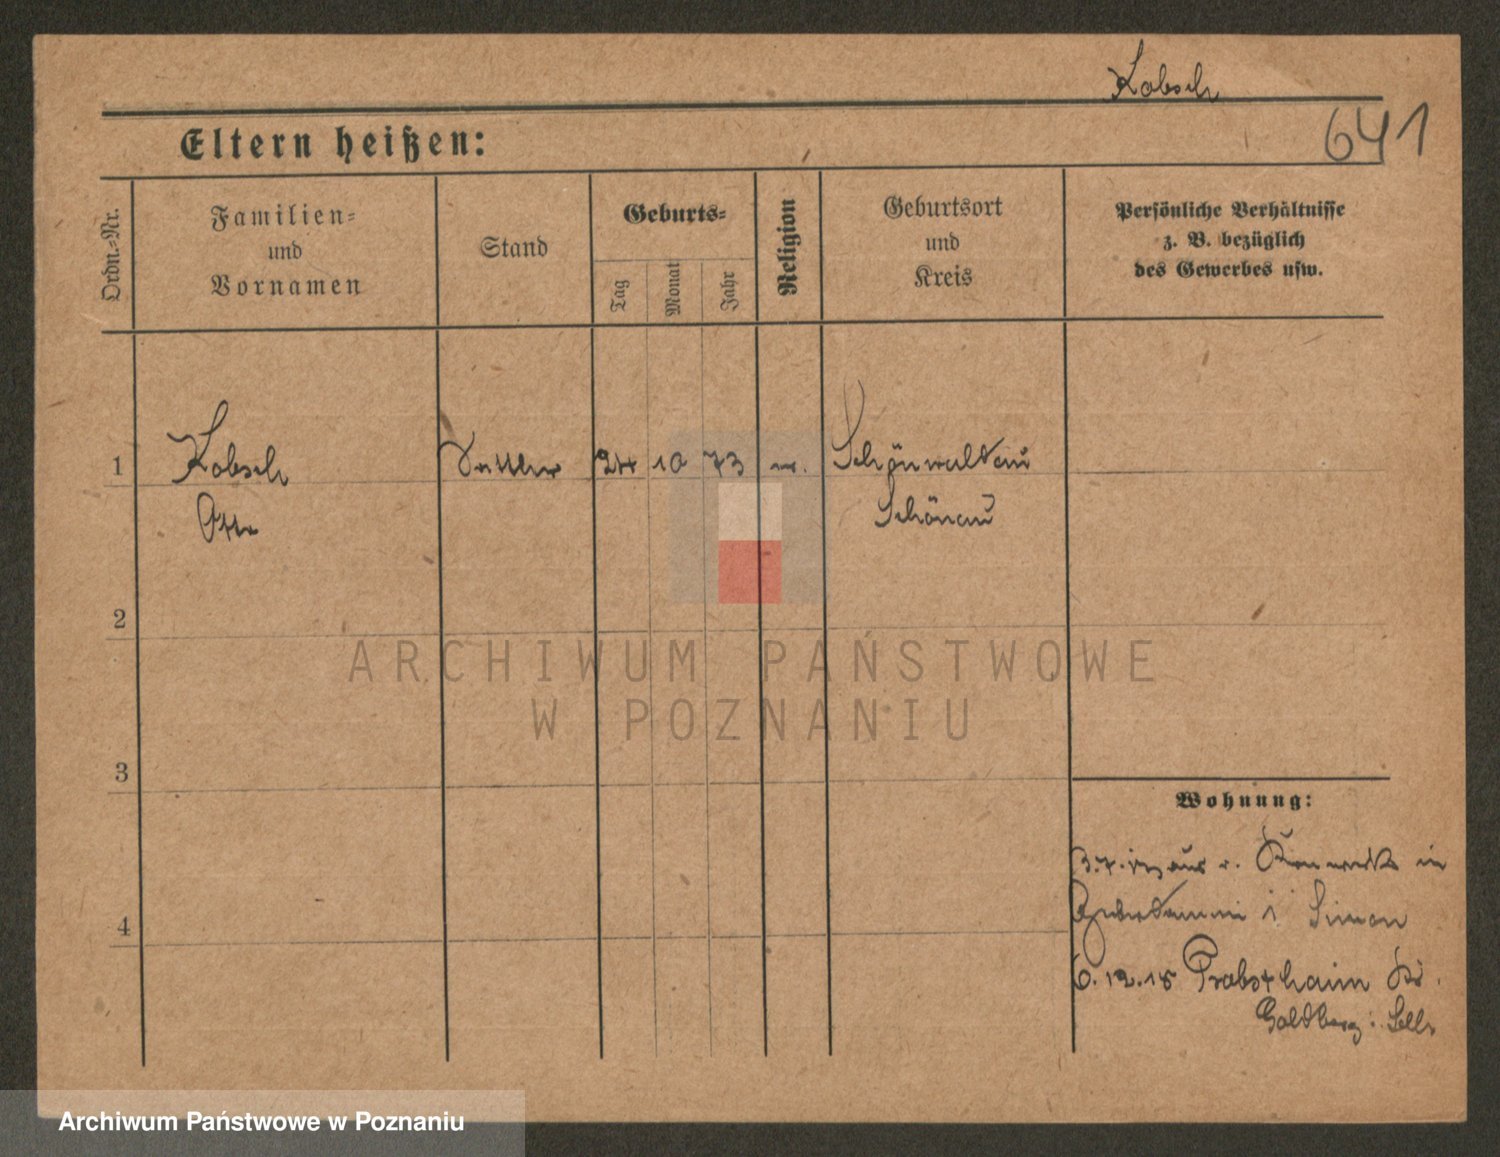 Kobsch
641
Eltern heißen:
Ordn.-Nr.
Familien-
und
Vornamen
Stand
Geburts-
Tag
Monat
Jahr
Religion
Geburtsort
und
Kreis
Persönliche Verhältnisse
z. B. bezüglich
des Gewerbes usw.
1
Kobsch
Otto
Sattler
24
10
73
Schönwaldau
Schönau
2
ARCHIWUM PAŃSTWOWE
W POZNANIU
3
Wohnung:
aus in
Simon
4
6.12.18 Probsthain Kr.
Goldberg
Archiwum Państwowe w Poznaniu